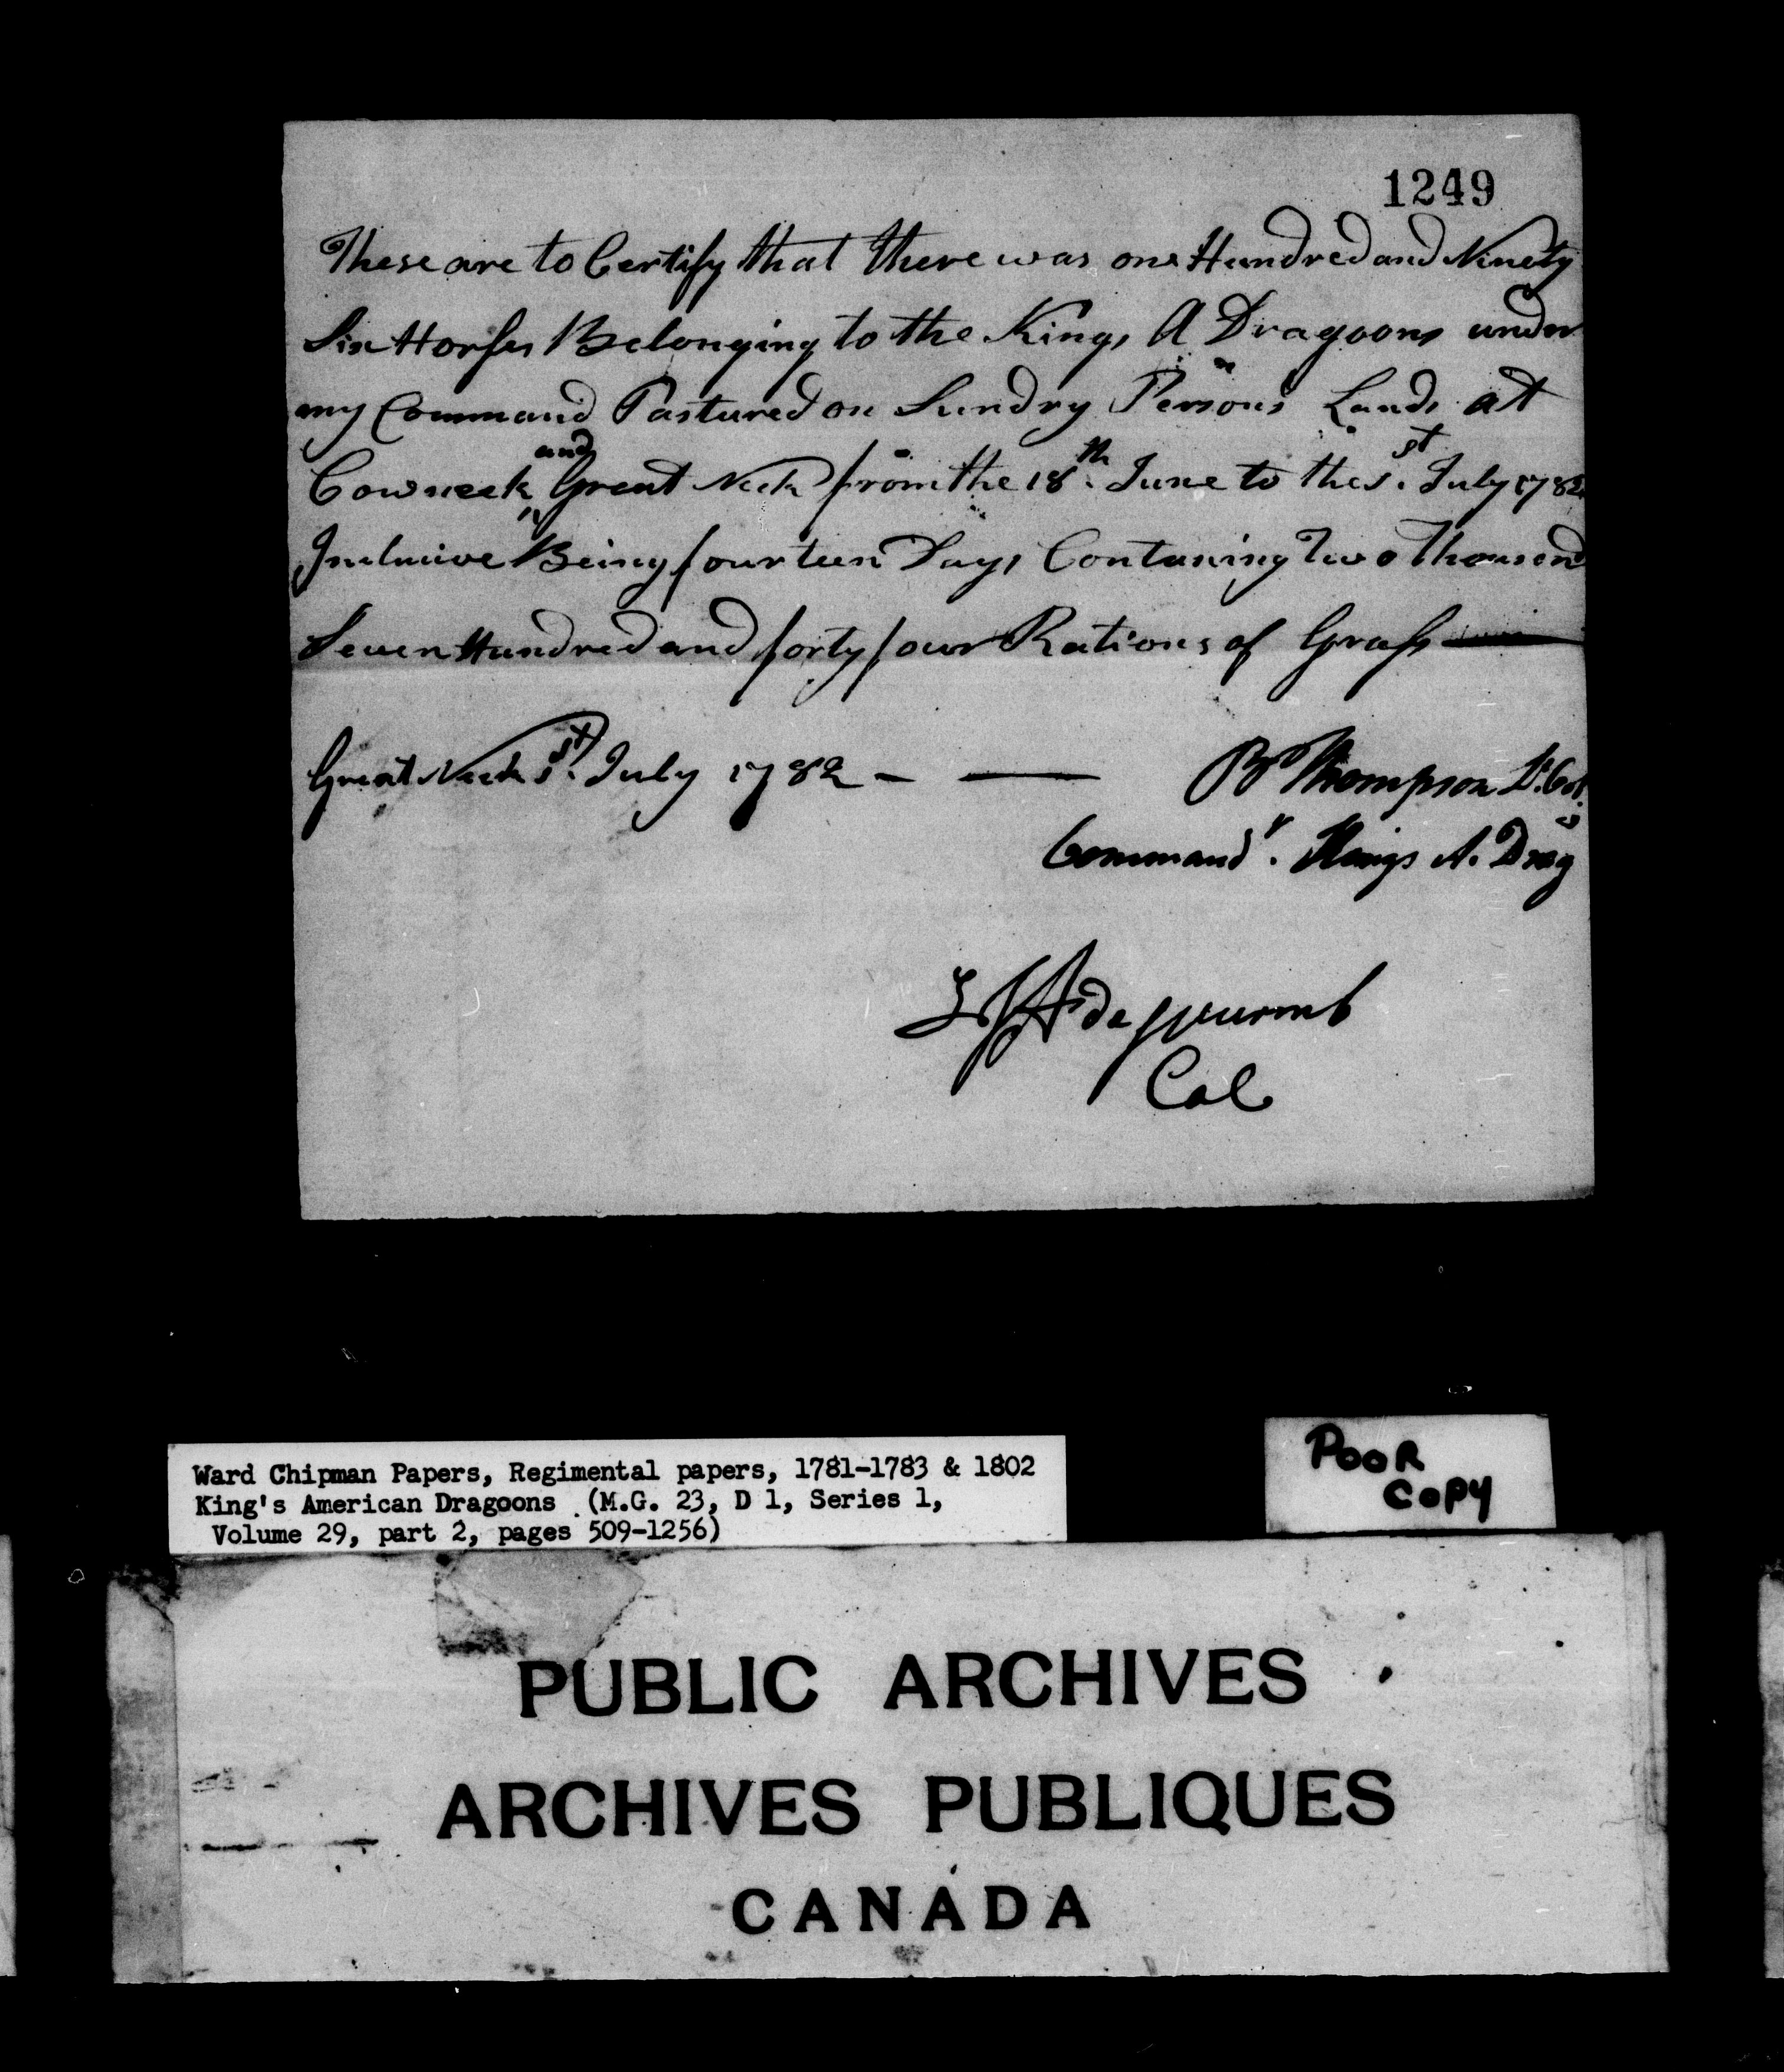 1249
These are to Certify that there was one Hundred and Ninety
Six Horses Belonging to the Kings A Dragoons under
my Command Pastured on Sundry Persons Lands att
Cowneck and Great Neck from the 18th. June to the 1st. July 1782
Inclusive Being fourteen Days Contuning Two Thousend
Seven Hundred and forty four Rations of Grass
Great Neck 1st. July 1782 - —
B Thompson Lt. Col.
Commandr. Kings A. Drag
de Wurmb
Col
Ward Chipman Papers, Regimental papers, 1781-1783 & 1802
King's American Dragoons (M.G. 23, D 1, Series 1,
Volume 29, part 2, pages 509-1256)
POOR
COPY
PUBLIC ARCHIVES
ARCHIVES PUBLIQUES
CANADA